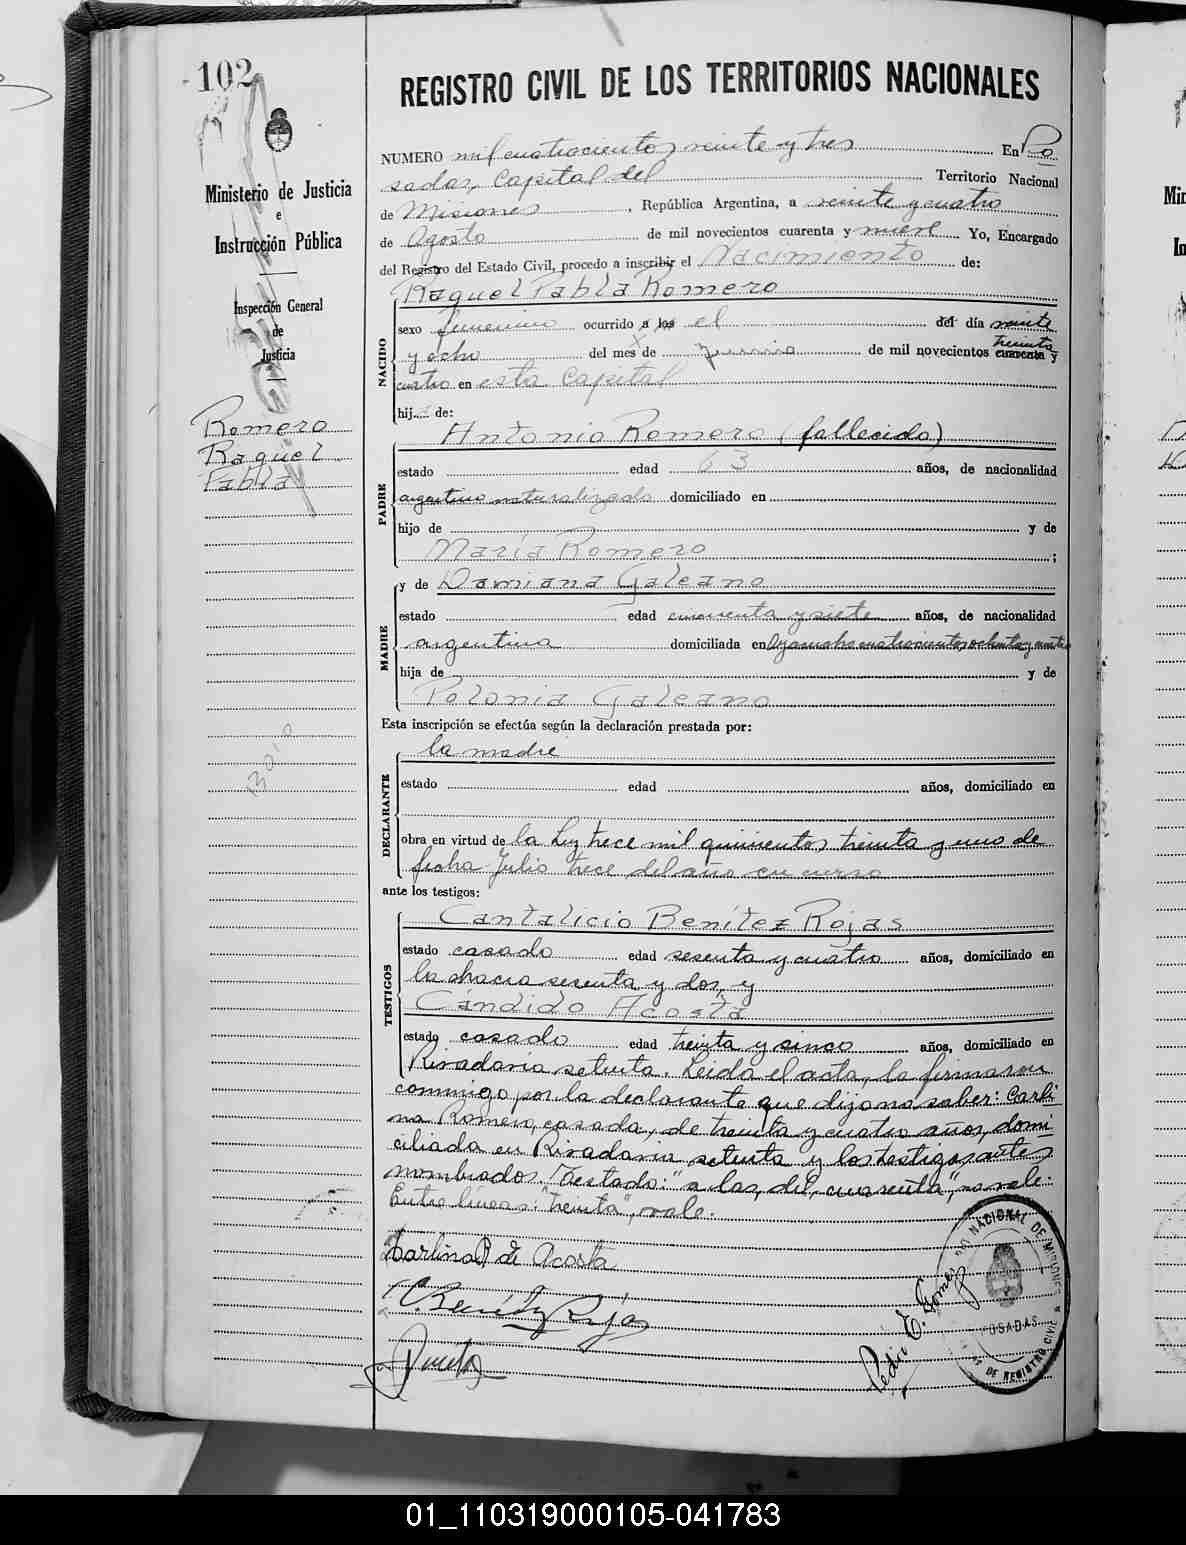 102
REGISTRO CIVIL DE LOS TERRITORIOS NACIONALES
Ministerio de Justicia
e
Instrucción Pública
Inspección General
de
Justicia
Romero
Raquel
Pabla
NUMERO mil cuatrocientos veinte y tres En Po
sadas, Capital del Territorio Nacional
de Misiones, República Argentina, a veinte y cuatro
de Agosto de mil novecientos cuarenta y nueve Yo, Encargado
del Registro del Estado Civil, procedo a inscribir el Nacimiento de:
NACIDO
Raquel Pabla Romero
sexo femenino ocurrido a las el del día veinte
y ocho del mes de junio de mil novecientos cuarenta treinta y
cuatro en esta Capital
hij de:
PADRE
Antonio Romero (fallecido)
estado edad 63 años, de nacionalidad
argentino naturalizado domiciliado en
hijo de y de
María Romero ;
MADRE
y de Damiana Galeano
estado edad cincuenta y siete años, de nacionalidad
argentina domiciliada en Ayacucho cuatrocientos ochenta y
hija de y de
Polonia Galeano
Esta inscripción se efectúa según la declaración prestada por:
DECLARANTE
la madre
estado edad años, domiciliado en
obra en virtud de la Ley trece mil quinientos treinta y uno de
fecha Julio trece del año en curso
ante los testigos:
TESTIGOS
Cantalicio Benítez Rojas
estado casado edad sesenta y cuatro años, domiciliado en
la chacra sesenta y dos, y
Cándido Acosta
estado casado edad treinta y cinco años, domiciliado en
Rivadavia setenta. Leida el acta, la firmaron
conmigo por la declarante que dijo no saber: Carli
na Romero, casada, de treinta y cuatro años, domi
ciliada en Rivadavia setenta y los testigos antes
nombrados. Testado: "a las, del, cuarenta", no vale.
Entre lineas: "treinta", vale.
Carlina R de Acosta
C. Benítez Rojas
Pedro E. Gomez
NACIONAL DE MISIONES
POSADAS
DE REGISTRO CIVIL
01_110319000105-041783